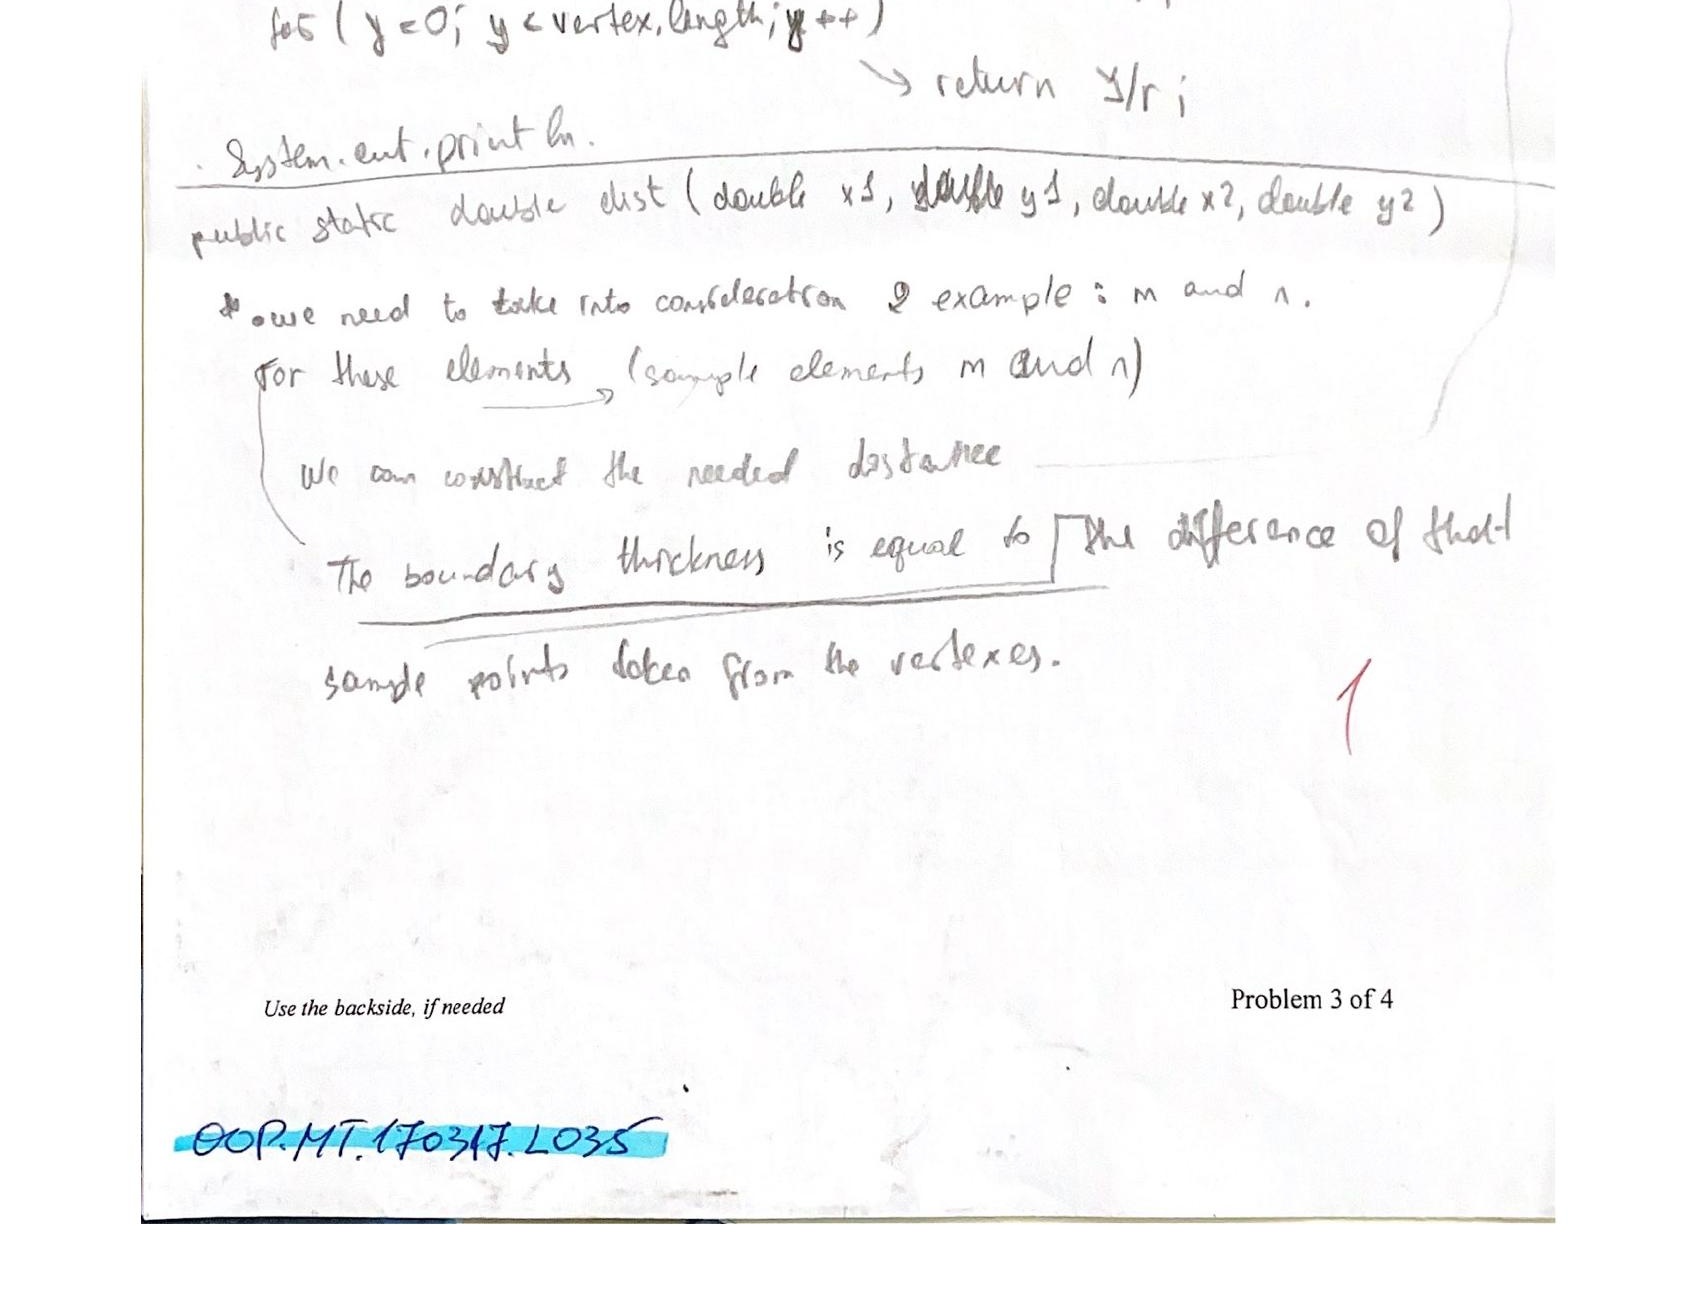 for ( y = 0; y < vertex.length; y ++ )
→ return y/r ;
. System.out.println.
public static double dist ( double x1, double y1, double x2, double y2 )
* we need to take into consideration 2 example : m and n.
For these elements → (sample elements m and n)
We can construct the needed distance
The boundary thickness is equal to the difference of that
sample points taken from the vertexes.
1
Use the backside, if needed
Problem 3 of 4
OOP.MT.170317.L035